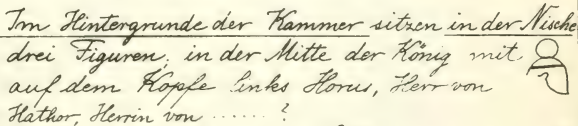 Im Hintergrunde der Kammer sitzen in der Nische
drei Figuren, in der Mitte der König mit
auf dem Kopfe links Horus, Herr von
Hathor, Herrin von ...... ?